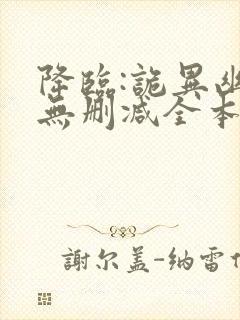 降臨:詭異幽
無刪減全本
謝尔盖-纳雷